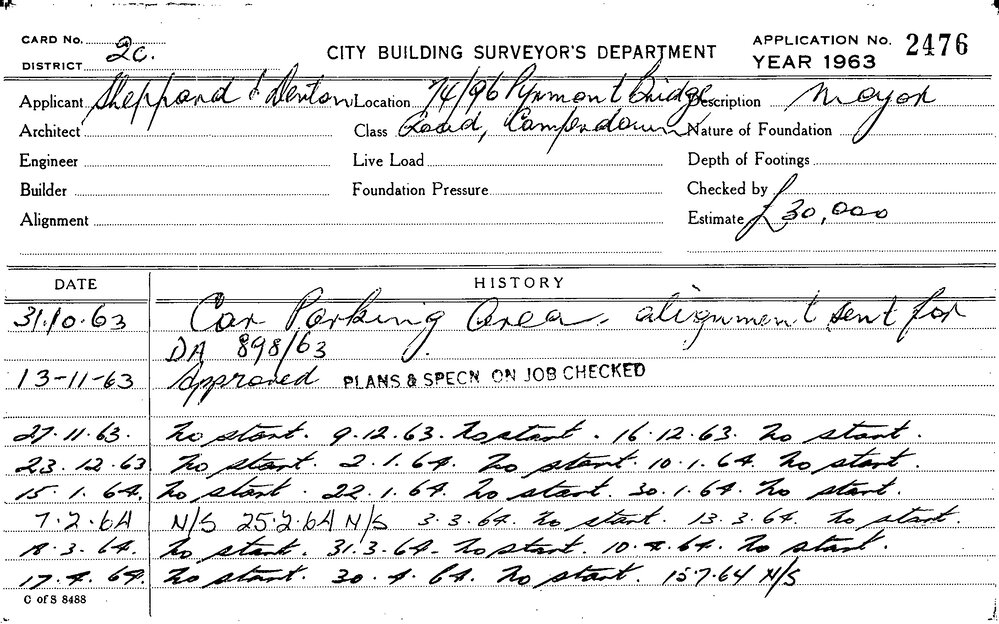 CARD No.
DISTRICT 2c.
CITY BUILDING SURVEYOR'S DEPARTMENT
APPLICATION No. 2476
YEAR 1963
Applicant Sheppard & Denton Location 74/96 Pyrmont Bridge Description Mayor
Architect Class Road, Camperdown Nature of Foundation
Engineer Live Load Depth of Footings
Builder Foundation Pressure Checked by
Alignment Estimate £30,000
DATE HISTORY
31.10.63 Car Parking Area, alignment sent for
DA 898/63
13-11-63 Approved PLANS & SPECN ON JOB CHECKED
27.11.63. No start. 9.12.63. No start. 16.12.63. No start.
23.12.63 No start. 2.1.64. No start. 10.1.64. No start.
15.1.64. No start. 22.1.64. No start. 30.1.64. No start.
7.2.64 N/S 25.2.64 N/S 3.3.64. No start. 13.3.64. No start.
18.3.64. No start. 31.3.64. No start. 10.4.64. No start.
17.4.64. No start. 30.4.64. No start. 15.7.64 N/S
C of S 8488